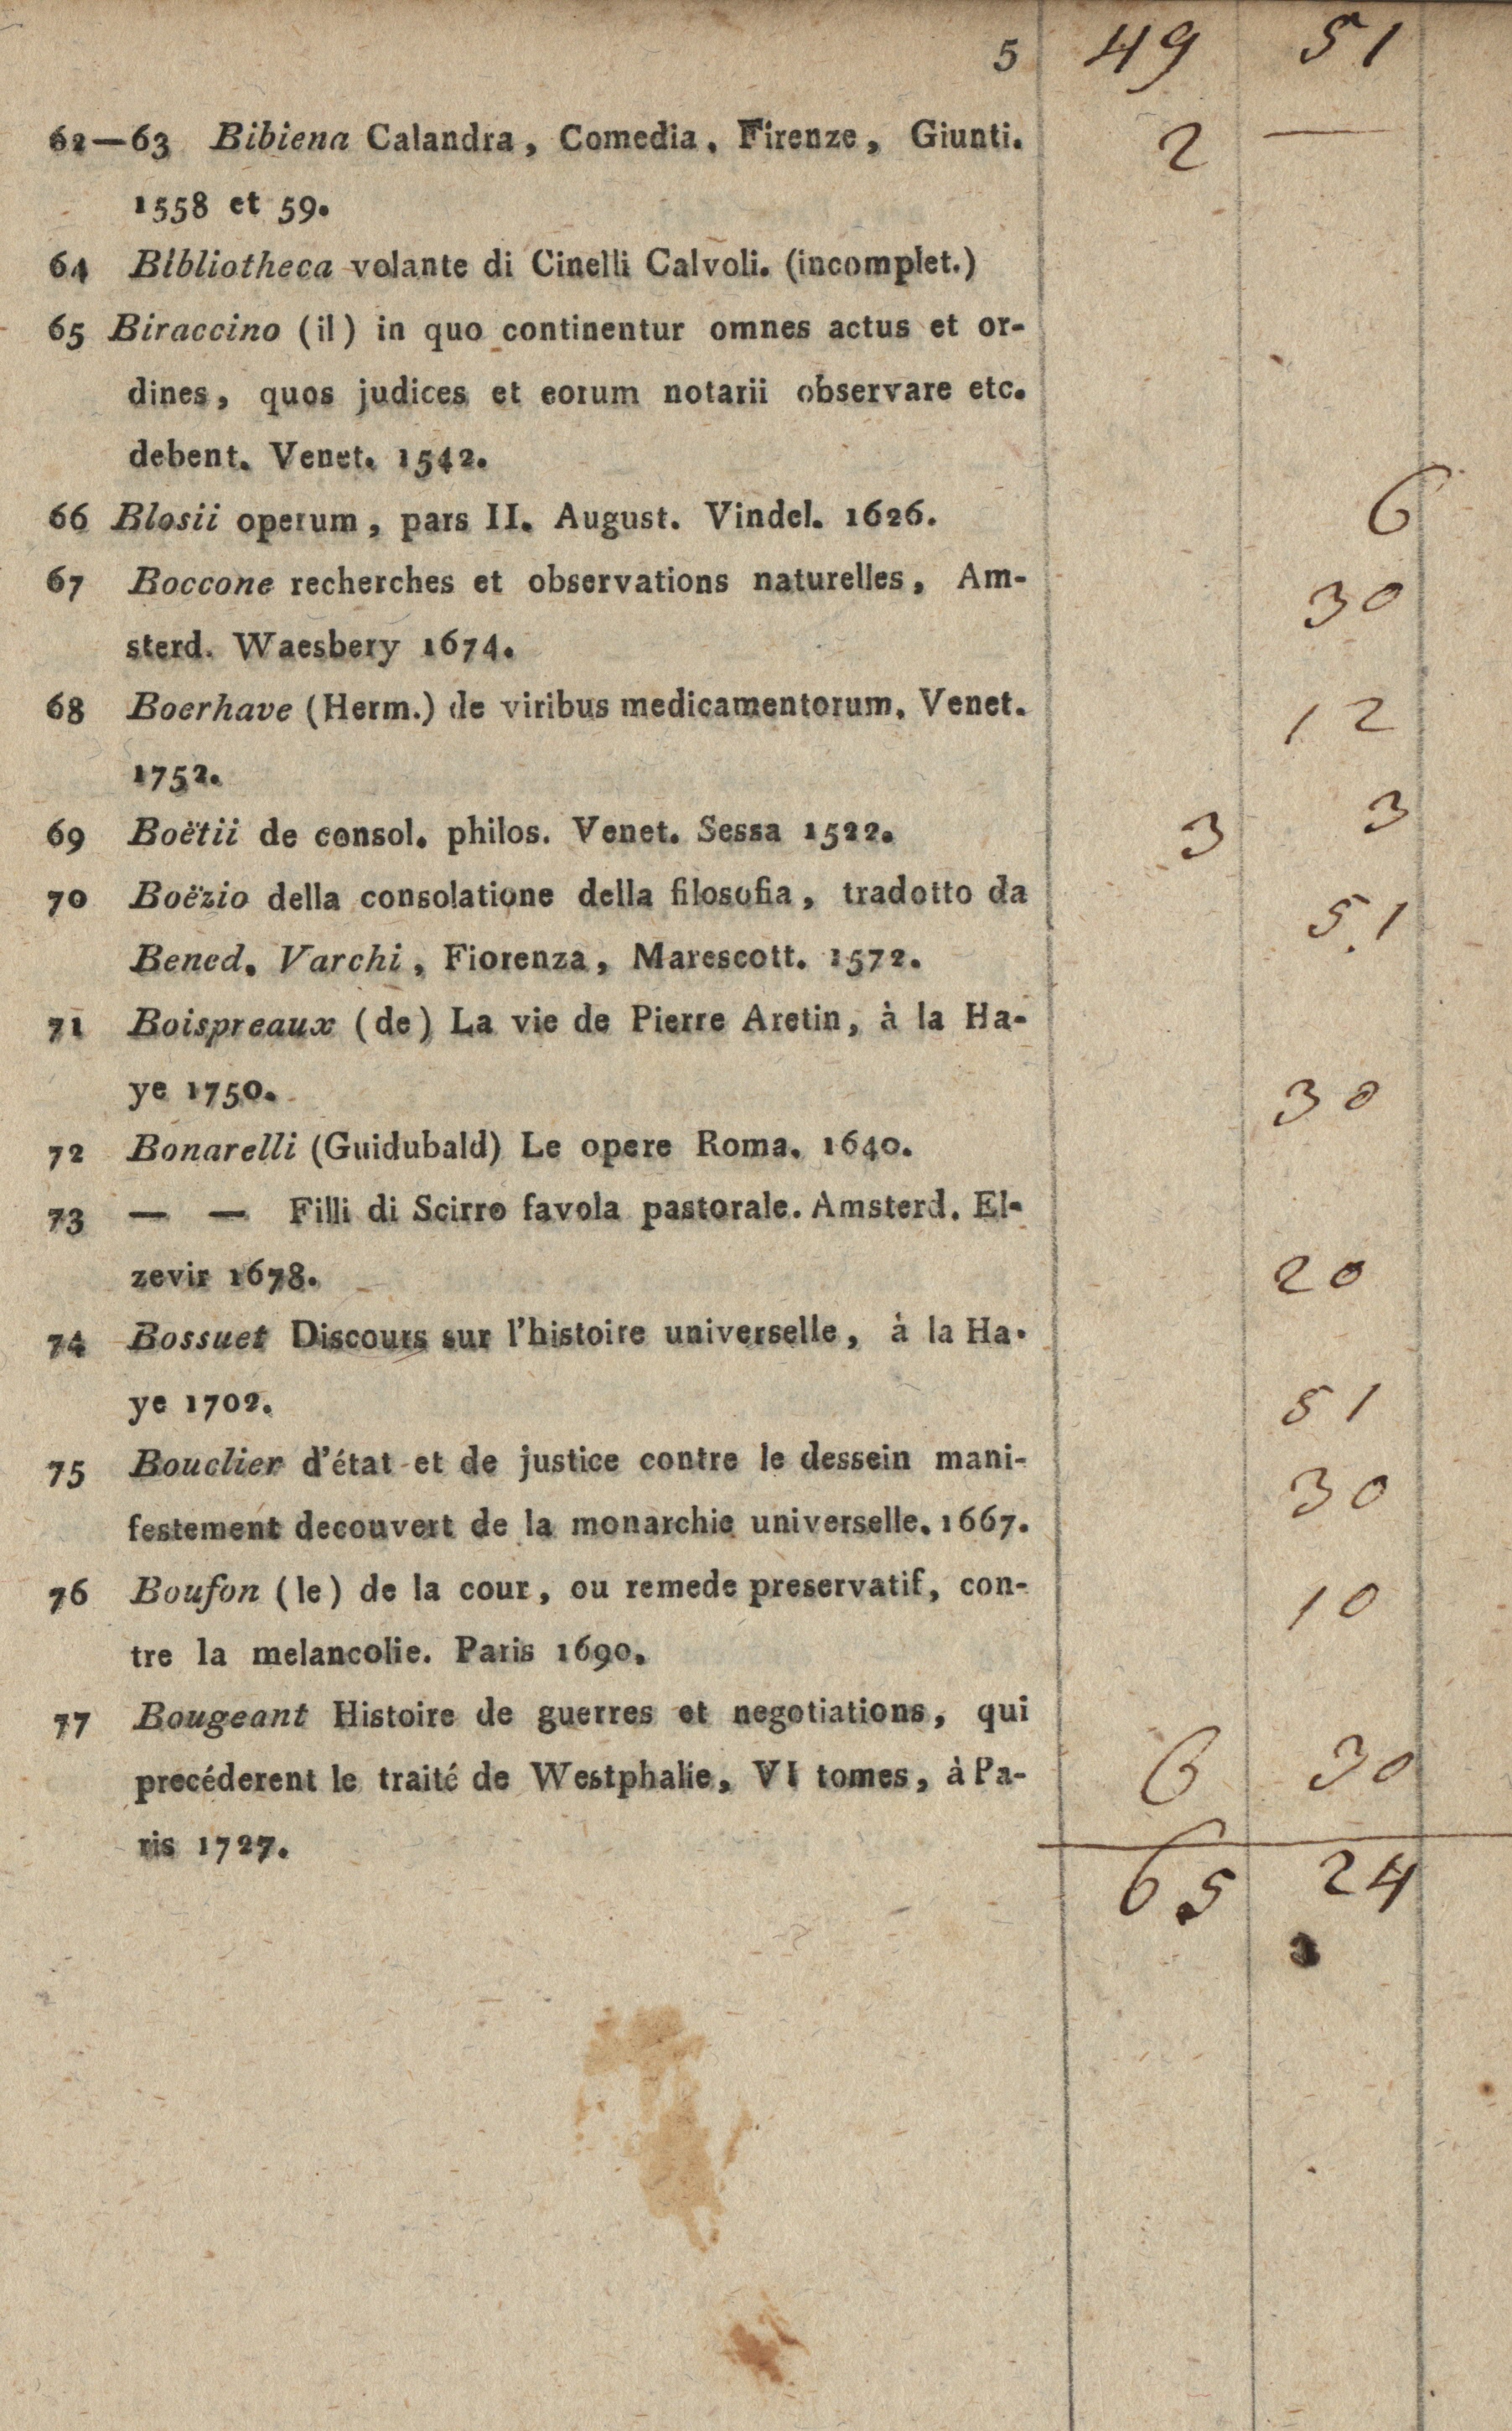 5 49 51
62—63 Bibiena Calandra, Comedia. Firenze, Giunti. 2 —
1558 et 59.
64 Bibliotheca volante di Cinelli Calvoli. (incomplet.)
65 Biraccino (il) in quo continentur omnes actus et or-
dines, quos judices et eorum notarii observare etc.
debent. Venet. 1542.
66 Blosii operum, pars II. August. Vindel. 1626. 6
67 Boccone recherches et observations naturelles, Am- 30
sterd. Waesbery 1674.
68 Boerhave (Herm.) de viribus medicamentorum. Venet. 12
1752.
69 Boëtii de consol. philos. Venet. Sessa 1522. 3 3
70 Boëzio della consolatione della filosofia, tradotto da 51
Bened. Varchi, Fiorenza, Marescott. 1572.
71 Boispreaux (de) La vie de Pierre Aretin, à la Ha-
ye 1750. 30
72 Bonarelli (Guidubald) Le opere Roma. 1640.
73 — — Filli di Scirro favola pastorale. Amsterd. El-
zevir 1678. 20
74 Bossuet Discours sur l'histoire universelle, à la Ha-
ye 1702. 51
75 Bouclier d'état et de justice contre le dessein mani- 30
festement decouvert de la monarchie universelle. 1667.
76 Boufon (le) de la cour, ou remede preservatif, con- 10
tre la melancolie. Paris 1690.
77 Bougeant Histoire de guerres et negotiations, qui
precéderent le traité de Westphalie, VI tomes, à Pa- 6 30
ris 1727.
65 24